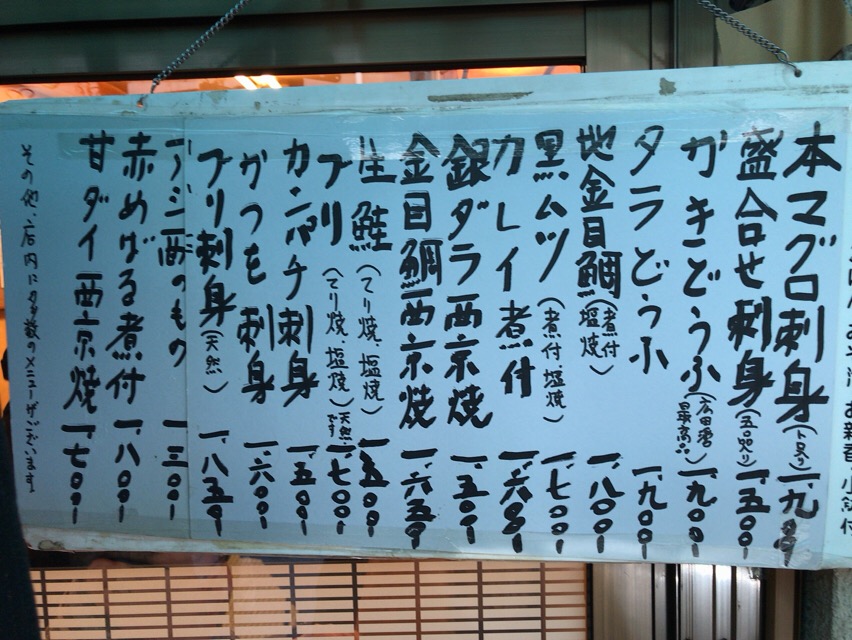 本マグロ刺身(トロ入り)一、九〇〇
盛合せ刺身(五品入り)一、五〇〇
かきどうふ(広田湾最高)一、九〇〇
タラどうふ 一、九〇〇
地金目鯛(煮付 塩焼)一、八〇〇
黒ムツ(煮付、塩焼)一、七〇〇
カレイ煮付 一、六〇〇
銀ダラ西京焼 一、五〇〇
金目鯛西京焼 一、六五〇
生鮭(てり焼、塩焼)一、五〇〇
ブリ(てり焼、塩焼)天然です 一、七〇〇
カンパチ刺身 一、五〇〇
かつを刺身 一、六〇〇
ブリ刺身(天然)一、八五〇
アジ酢のもの 一、三〇〇
赤めばる煮付 一、八〇〇
甘ダイ西京焼 一、七〇〇
その他、店内に多数のメニューがございます。